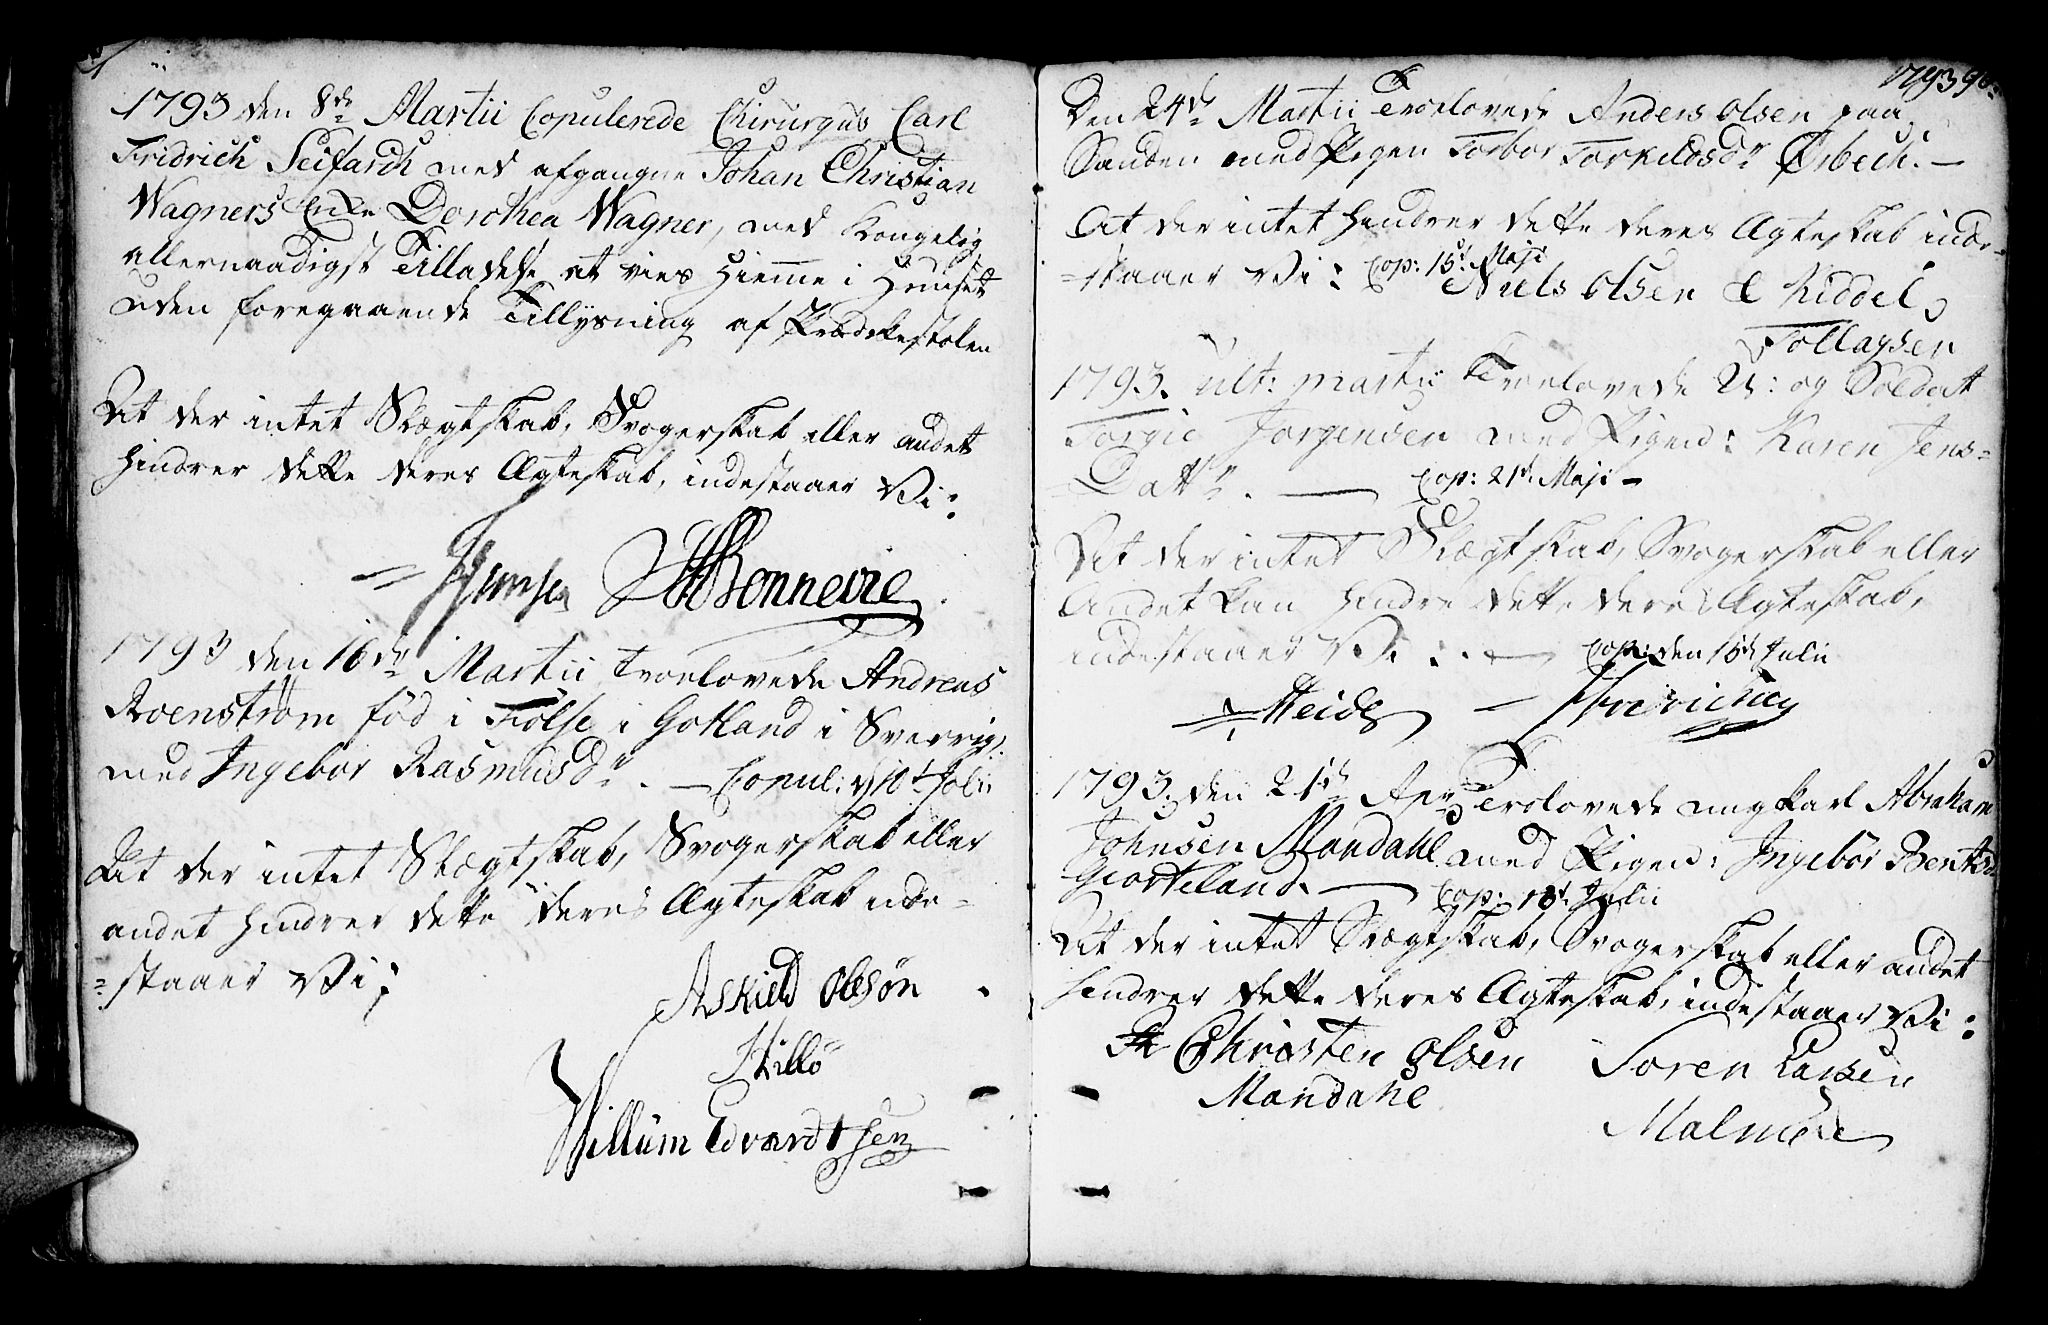 1793 den 8de Martii Copulerede Chirurgus Carl
Fridrich Seifarth med afgangne Johan Christian
Wagners Enke Dorothea Wagner, med Kongelig
allernaadigst Tilladelse at vies hieme i Huuset
uden foregaaende Tillysning af Prædikestolen
At der intet Slægtskab, Svogerskab eller andet
hindrer dette deres Ægteskab, indestaaer Vi:
Bonnevie
1793 den 16de Martii Troelovede Andreas
Roenstrøm fød i Fiölse i Gotland i Sverrig
med Ingebor Rasmusdr. — Copul: d 10d Julii
At der intet Slægtskab, Svogerskab eller
andet hindrer dette deres Ægteskab inde-
=staaer Vi;
Askield Olesøn
Skillö
Willum Edvardtsen
1793 90.
Den 24de Martii Troelovede Anders Olsen paa
Sanden med Pigen Torbor Torkildsdr Ørbech. —
At der intet hindrer dette deres Ægteskab inde-
=staaer Vi: Cop: 15d Maji
Niels Olsen & Kiddel
Tollagsen
1793. ult: martii Troelovede U: og Soldat
Torgie Jorgensen med Pigen: Karen Jens=
=Dattr. — Cop: 21d Maji —
At der intet Slægtskab, Svogerskab eller
Andet kan hindre dette deres Ægteskab,
indestaaer Vi: — Cop: den 15d Julii
Heide —
1793. den 21de Apr Trolovede ungkarl Abraham
Johnsen Mandahl med Pigen: Ingebor Bentsd
Giorteland. — Cop: 18d Julii
At der intet Slægtskab, Svogerskab eller andet
hindrer dette deres Ægteskab, indestaaer Vi:
Christen Olsen Soren Larsen
Mandahl Malmöe